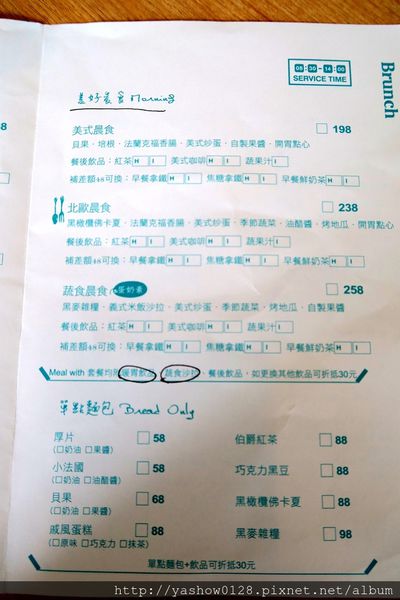 08:30 - 14:00
SERVICE TIME
Brunch
美好晨食 Morning
美式晨食 □ 198
貝果．培根．法蘭克福香腸．美式炒蛋．自製果醬．開胃點心
餐後飲品：紅茶 H I 美式咖啡 H I 蔬果汁 I
補差額48可換：早餐拿鐵 H I 焦糖拿鐵 H I 早餐鮮奶茶 H I
北歐晨食 □ 238
黑橄欖佛卡夏．法蘭克福香腸．美式炒蛋．季節蔬菜．油醋醬．烤地瓜．開胃點心
餐後飲品：紅茶 H I 美式咖啡 H I 蔬果汁 I
補差額48可換：早餐拿鐵 H I 焦糖拿鐵 H I 早餐鮮奶茶 H I
蔬食晨食 蛋奶素 □ 258
黑麥雜糧．義式米飯沙拉．美式炒蛋．季節蔬菜．烤地瓜．自製果醬
餐後飲品：紅茶 H I 美式咖啡 H I 蔬果汁 I
補差額48可換：早餐拿鐵 H I 焦糖拿鐵 H I 早餐鮮奶茶 H I
Meal with 套餐均附暖胃飲品、蔬食沙拉、餐後飲品，如更換其他飲品可折抵30元
單點麵包 Bread Only
厚片 □ 58
(□奶油 □果醬)
小法國 □ 58
(□奶油 □油醋醬)
貝果 □ 68
(□奶油 □果醬)
戚風蛋糕 □ 88
(□原味 □巧克力 □抹茶)
伯爵紅茶 □ 88
巧克力黑豆 □ 88
黑橄欖佛卡夏 □ 88
黑麥雜糧 □ 98
單點麵包+飲品可折抵30元
8
8
http://yashow0128.pixnet.net/album